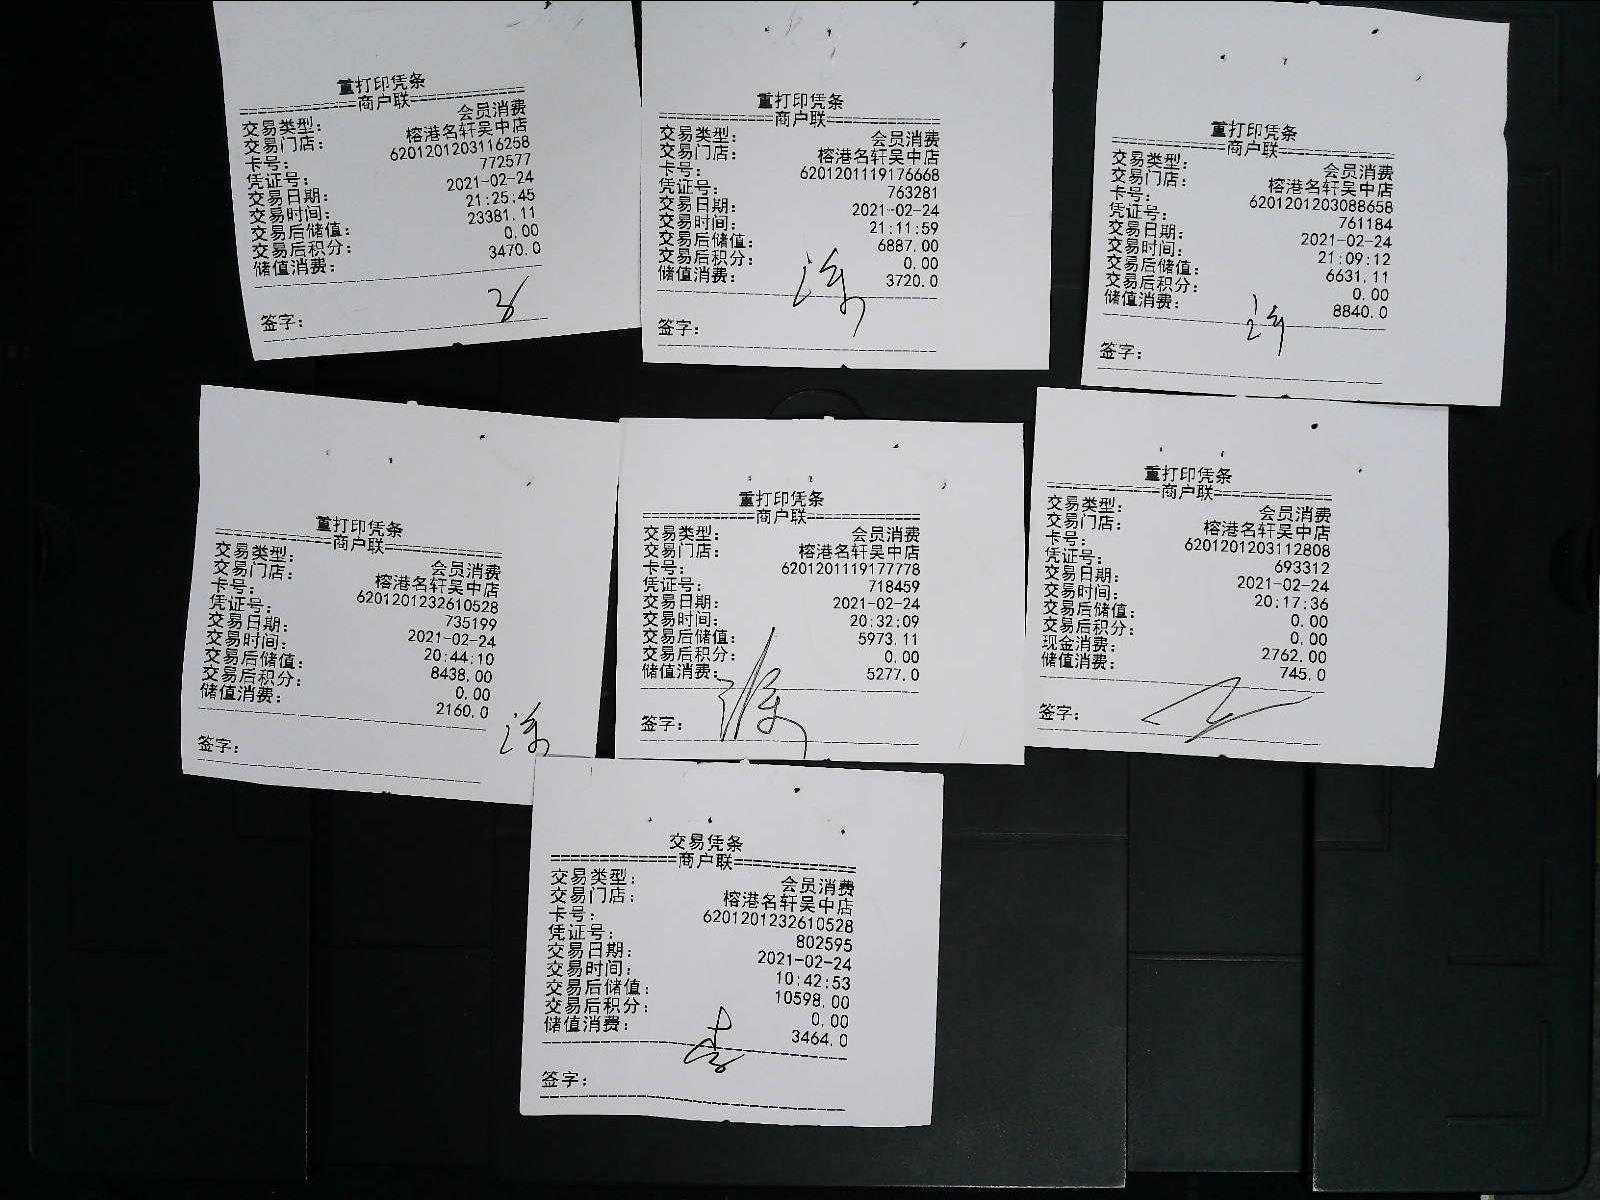 重打印凭条
============商户联============
交易类型： 会员消费
交易门店： 榕港名轩吴中店
卡号： 6201201203116258
凭证号： 772577
交易日期： 2021-02-24
交易时间： 21:25:45
交易后储值： 23381.11
交易后积分： 0.00
储值消费： 3470.0
签字：
重打印凭条
============商户联============
交易类型： 会员消费
交易门店： 榕港名轩吴中店
卡号： 6201201119176668
凭证号： 763281
交易日期： 2021-02-24
交易时间： 21:11:59
交易后储值： 6887.00
交易后积分： 0.00
储值消费： 3720.0
签字：
重打印凭条
============商户联============
交易类型： 会员消费
交易门店： 榕港名轩吴中店
卡号： 6201201203088658
凭证号： 761184
交易日期： 2021-02-24
交易时间： 21:09:12
交易后储值： 6631.11
交易后积分： 0.00
储值消费： 8840.0
签字：
重打印凭条
============商户联============
交易类型： 会员消费
交易门店： 榕港名轩吴中店
卡号： 6201201232610528
凭证号： 735199
交易日期： 2021-02-24
交易时间： 20:44:10
交易后储值： 8438.00
交易后积分： 0.00
储值消费： 2160.0
签字：
重打印凭条
============商户联============
交易类型： 会员消费
交易门店： 榕港名轩吴中店
卡号： 6201201119177778
凭证号： 718459
交易日期： 2021-02-24
交易时间： 20:32:09
交易后储值： 5973.11
交易后积分： 0.00
储值消费： 5277.0
签字：
重打印凭条
============商户联============
交易类型： 会员消费
交易门店： 榕港名轩吴中店
卡号： 6201201203112808
凭证号： 693312
交易日期： 2021-02-24
交易时间： 20:17:36
交易后储值： 0.00
交易后积分： 0.00
现金消费： 2762.00
储值消费： 745.0
签字：
交易凭条
============商户联============
交易类型： 会员消费
交易门店： 榕港名轩吴中店
卡号： 6201201232610528
凭证号： 802595
交易日期： 2021-02-24
交易时间： 10:42:53
交易后储值： 10598.00
交易后积分： 0.00
储值消费： 3464.0
签字：